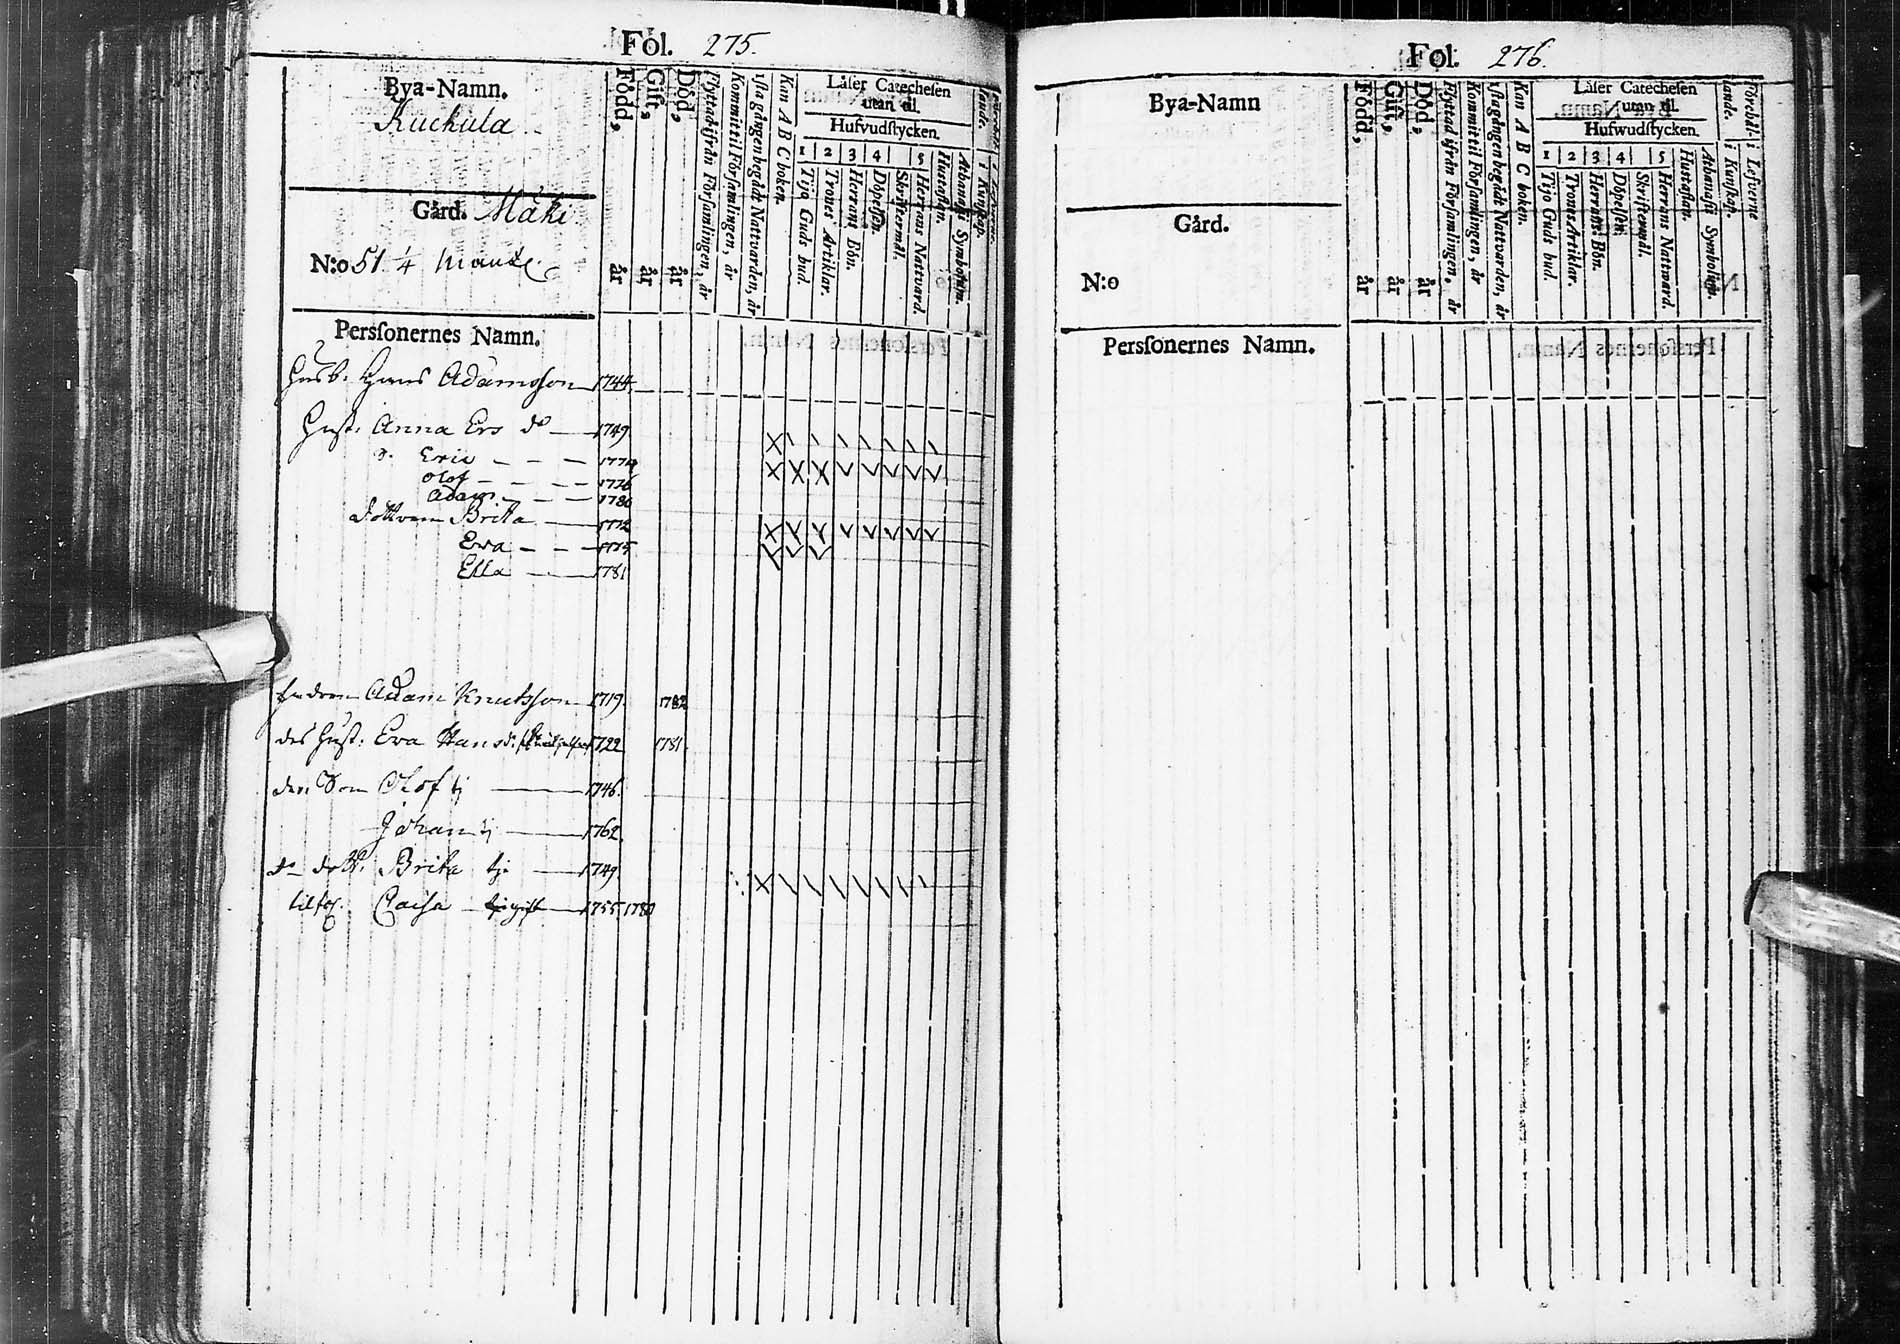 Fol. 275.
Bya-Namn.
Kuckula
Gård. Mäki
N:o 51. 1/4 mantl.
Född, år
Gift, år
Död, år
Flyttad ifrån Församlingen, år
Kommit til Församlingen, år
1sta gången begådt Nattvarden, år
Kan A B C boken.
Låser Catechesen
utan til.
Hufvudstycken.
1 2 3 4 5
Tijo Guds bud.
Trones Artiklar.
Herrans Bön.
Döpelsen.
Skriftermål.
Herrans Nattvard
Hustaflan.
Athanasii Symbolum.
Perssonernes Namn.
Husb. Hans Adamsson 1744
Hust. Anna Ers d:o 1749
s. Eric 1774
Olof 1776
Adam 1780
döttrarna Brita 1772
Eva 1775
Ella 1781
fadren Adam Knutsson 1719. 1782
des Hust: Eva Hansd. 1722 1781
den Son Olof tj 1746.
Johan tj 1762.
d:o dott. Brita tje 1749.
Caisa gift 1755. 1780
Fol. 276.
Bya-Namn
Gård.
N:o
Född, år
Gift, år
Död, år
Flyttad ifrån Församlingen, år
Kommit til Församlingen, år
1sta gången begådt Nattvarden, år
Kan A B C boken.
Låser Catechesen
utan til.
Hufwudstycken.
1 2 3 4 5
Tijo Guds bud.
Trones Artiklar.
Herrans Bön.
Döpelsen.
Skriftermål.
Herrans Nattvard.
Hustaflan.
Athanasii Symbolum.
Förehål- i Lefverne
lande. i Kunskap.
Perssonernes Namn.